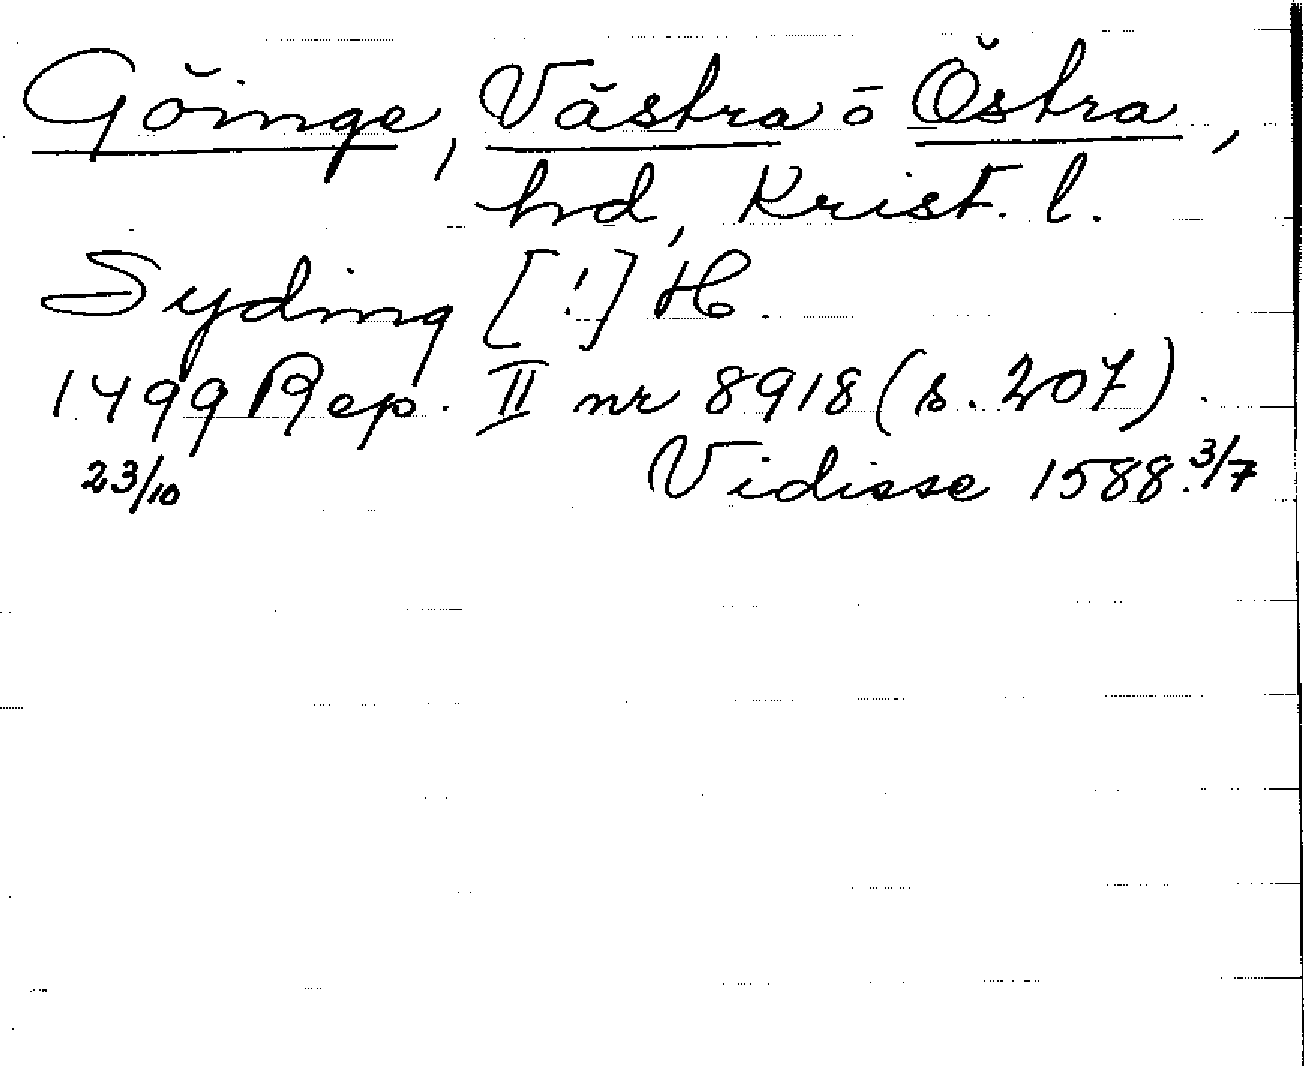 Göinge, Västra o Östra,
hd, Krist. l.
Syding [!] H.
1499 Rep. II nr 8918 (s. 207).
23/10 Vidisse 1588.3/7